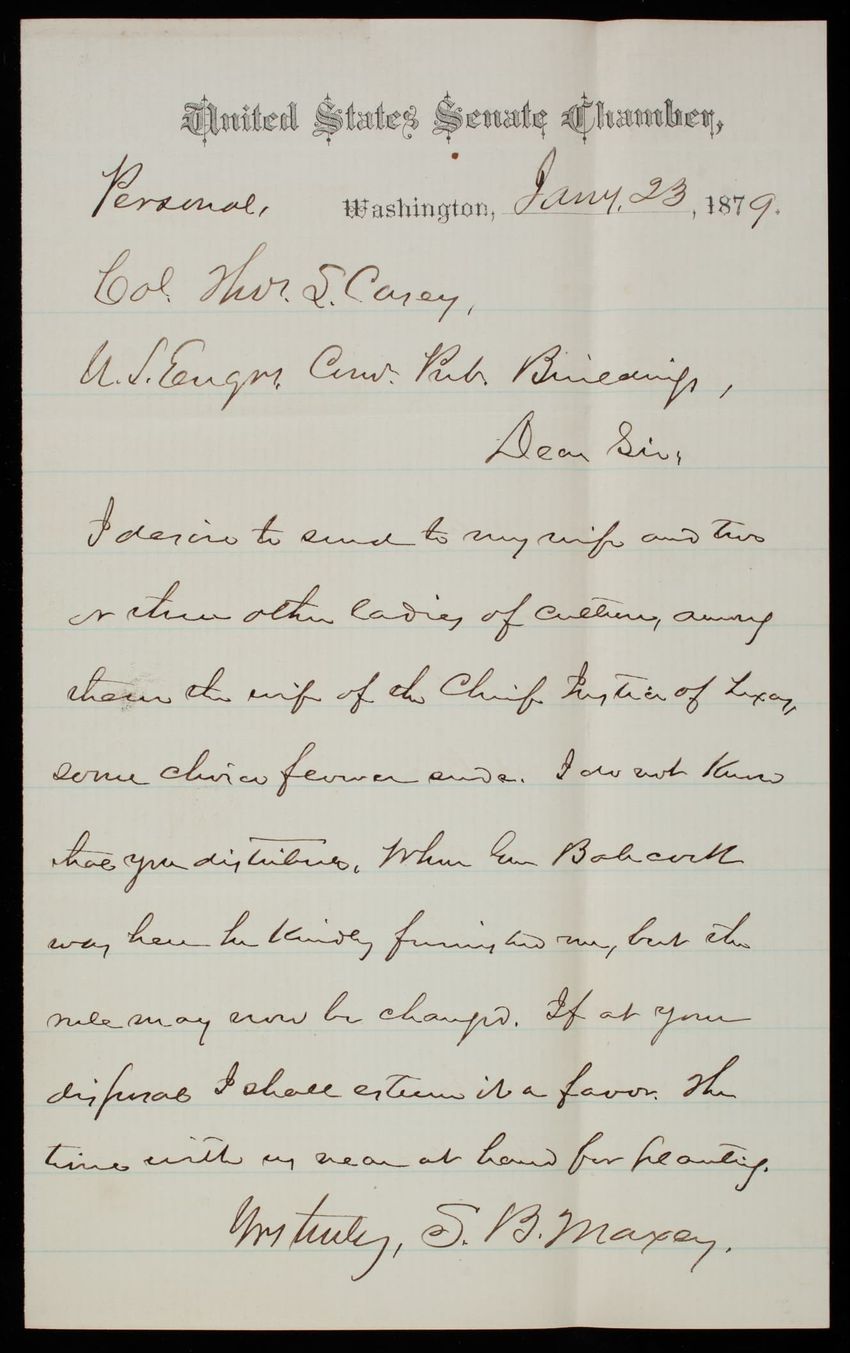 United States Senate Chamber,
Personal, Washington, Jany. 23, 1879.
Col. Thos. L. Casey,
U.S. Engrs. Com. Pub. Buildings,
Dear Sir,
I desire to send to my wife and two
or three other ladies of culture, among
them the wife of the Chief Justice of Texas,
some choice flower seeds. I do not know
that you distribute. When Gen Babcock
was here he kindly furnished me, but the
rule may now be changed. If at your
disposal I shall esteem it a favor. The
time with us near at hand for planting.
Yrs truly, S. B. Maxey.